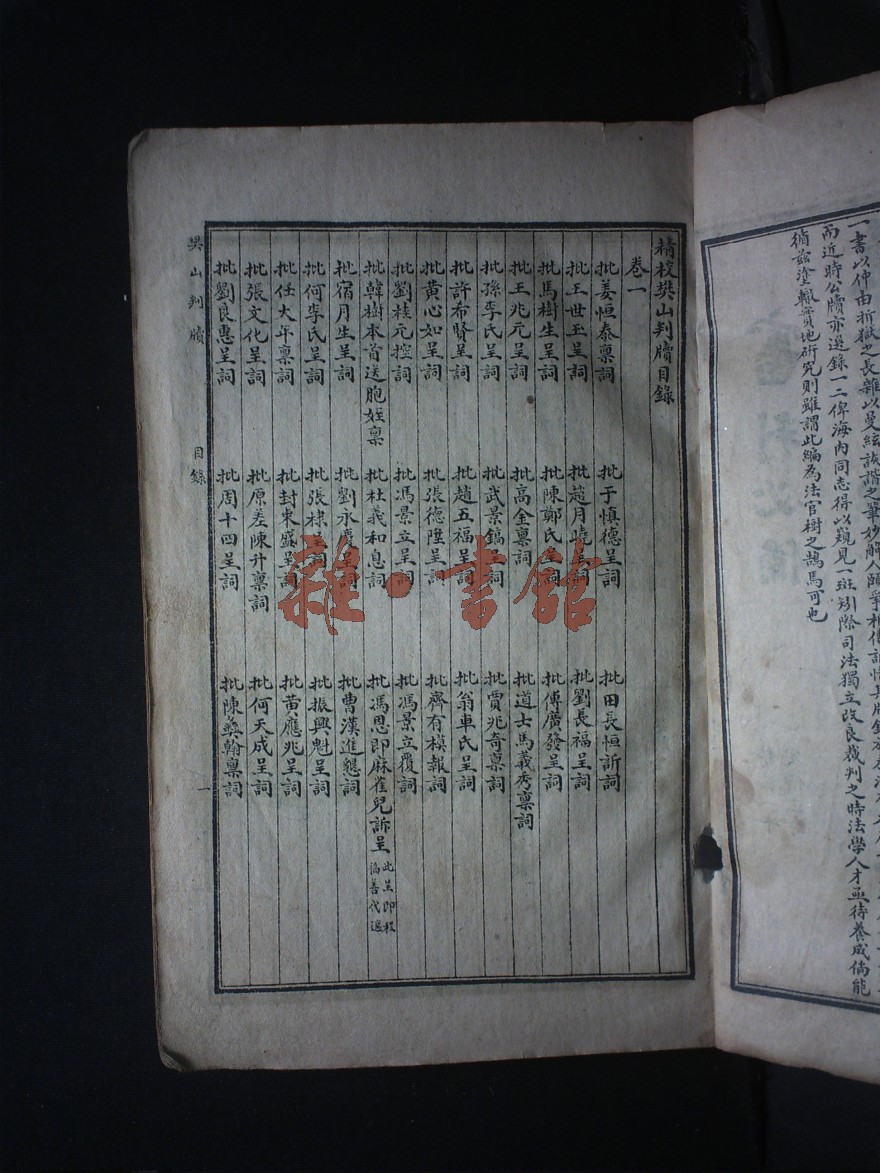 一書以仲由折獄之長雜以曼絃詼諧之筆妙解人頤爭相傳
而近時公牘亦選錄一二俾海內同志得以窺見一斑矧際司法獨立改良裁判之時法學人才亟待養成倘能
循茲塗轍實地研究則雖謂此編為法官樹之鵠焉可也
精校樊山判牘目錄
卷一
批姜恒泰稟詞 批于慎德呈詞 批田長恒訴詞
批王世玉呈詞 批趙月嶢呈詞 批劉長福呈詞
批馬樹生呈詞 批陳鄭氏詞 批傅廣發呈詞
批王兆元呈詞 批高金稟詞 批道士馬義秀稟詞
批孫李氏呈詞 批武景鎬詞 批賈兆奇稟詞
批許希賢呈詞 批趙五福呈詞 批翁車氏呈詞
批黃心如呈詞 批張德陞呈詞 批齊有模報詞
批劉桂元控詞 批馮景立呈詞 批馮景立覆詞
批韓樹本首送胞姪稟 批杜義和息詞 批馮恩即麻雀兒訴呈 此呈即程福善代遞
批宿月生呈詞 批劉永慶呈詞 批曹漢進懇詞
批何李氏呈詞 批張棣呈詞 批振興魁呈詞
批任大年稟詞 批封東盛呈詞 批黃應兆呈詞
批張文化呈詞 批原差陳升稟詞 批何天成呈詞
批劉良惠呈詞 批周十四呈詞 批陳彝翰稟詞
樊山判牘 目錄 一
雜·書館